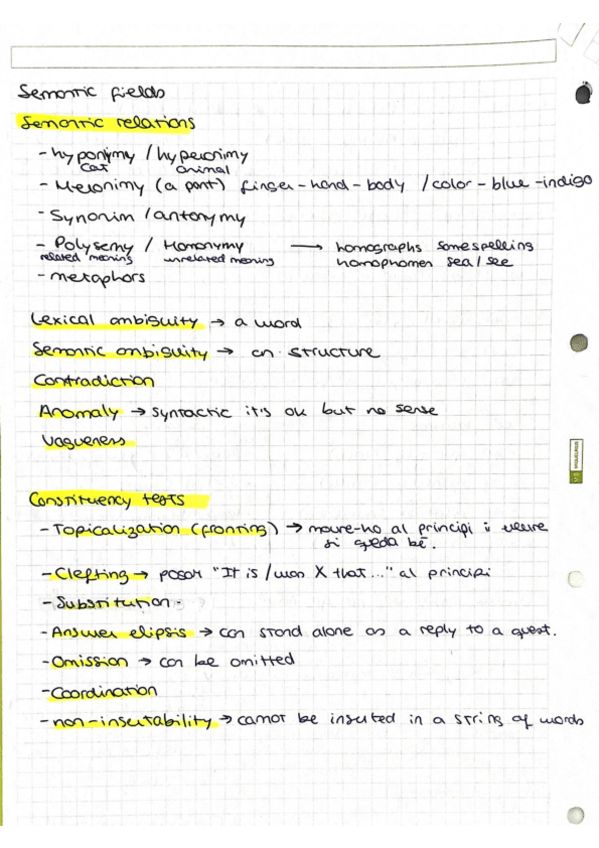 Semantic fields
Semantic relations
- hyponymy / hyperonimy
cat animal
- Meronimy (a part) finger - hand - body / color - blue - indigo
- Synonim / antonymy
- Polysemy / Homonymy → homographs same spelling
related meaning unrelated meaning homophones sea / see
- metaphors
Lexical ambiguity → a word
Semantic ambiguity → an structure
Contradiction
Anomaly → syntactic it's ok but no sense
Vagueness
Constituency tests
- Topicalization (fronting) → moure-ho al principi i veure
si queda bé.
- Clefting → posar "It is / was X that..." al principi
- Substitution -
- Answer elipsis → can stand alone as a reply to a quest.
- Omission → can be omitted
- Coordination
- non-insertability → cannot be inserted in a string of words